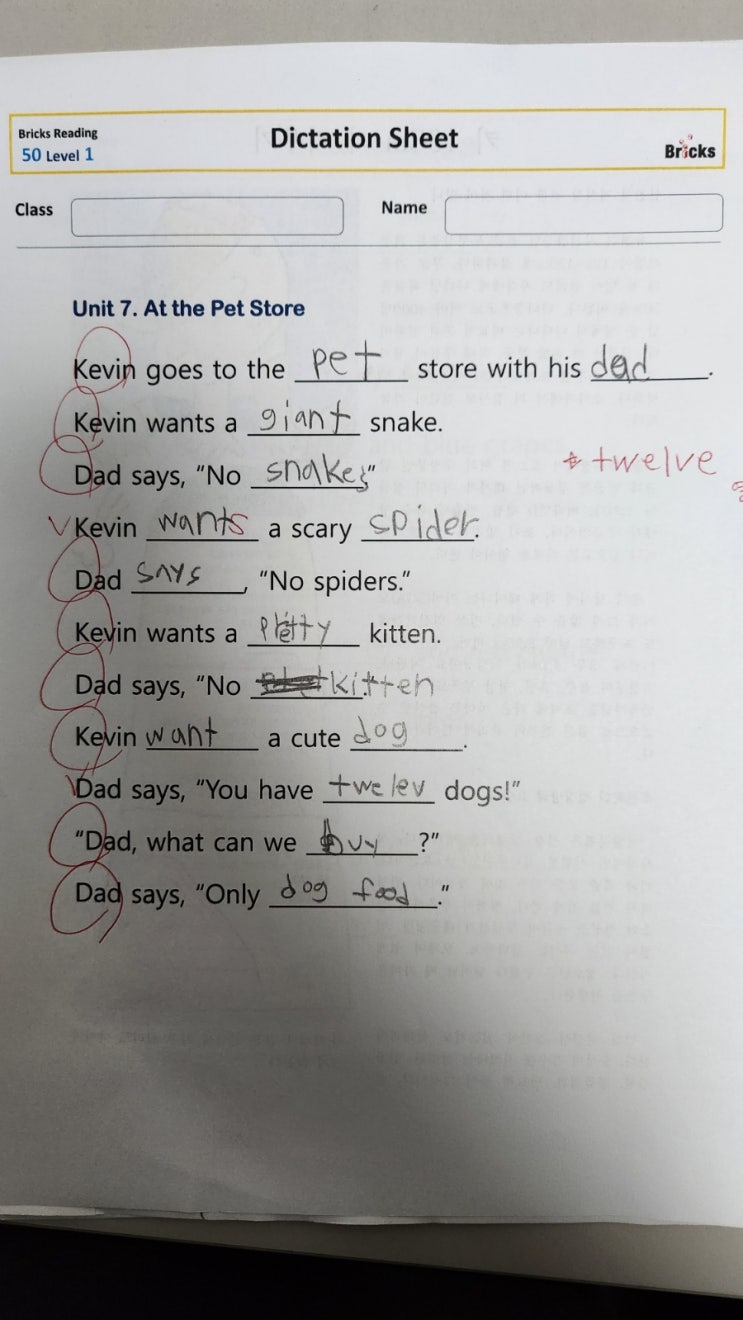 Bricks Reading
50 Level 1
Dictation Sheet
Bricks
Class
Name
Unit 7. At the Pet Store
Kevin goes to the pet store with his dad.
Kevin wants a giant snake.
Dad says, “No snakes”
* twelve
Kevin wants a scary spider.
Dad says, “No spiders.”
Kevin wants a pretty kitten.
Dad says, “No kitten
Kevin want a cute dog.
Dad says, “You have twelev dogs!”
“Dad, what can we buy?”
Dad says, “Only dog food.”